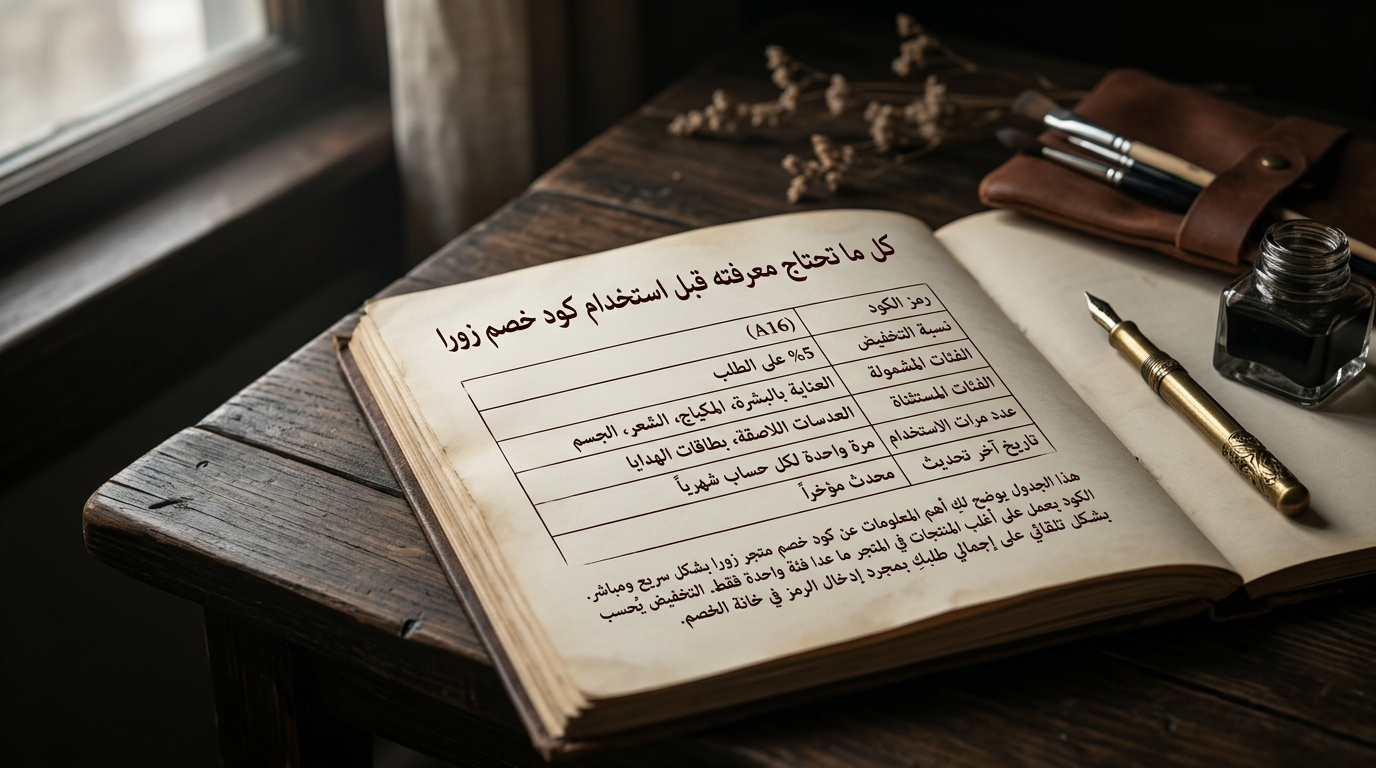 كل ما تحتاج معرفته قبل استخدام كود خصم زورا
رمز الكود (A16)
نسبة التخفيض 5% على الطلب
الفئات المشمولة العناية بالبشرة، المكياج، الشعر، الجسم
الفئات المستثناة العدسات اللاصقة، بطاقات الهدايا
عدد مرات الاستخدام مرة واحدة لكل حساب شهرياً
تاريخ آخر تحديث محدث مؤخراً
هذا الجدول يوضح لكِ أهم المعلومات عن كود خصم متجر زورا بشكل سريع ومباشر.
الكود يعمل على أغلب المنتجات في المتجر ما عدا فئة واحدة فقط. التخفيض يُحسب
بشكل تلقائي على إجمالي طلبكِ بمجرد إدخال الرمز في خانة الخصم.